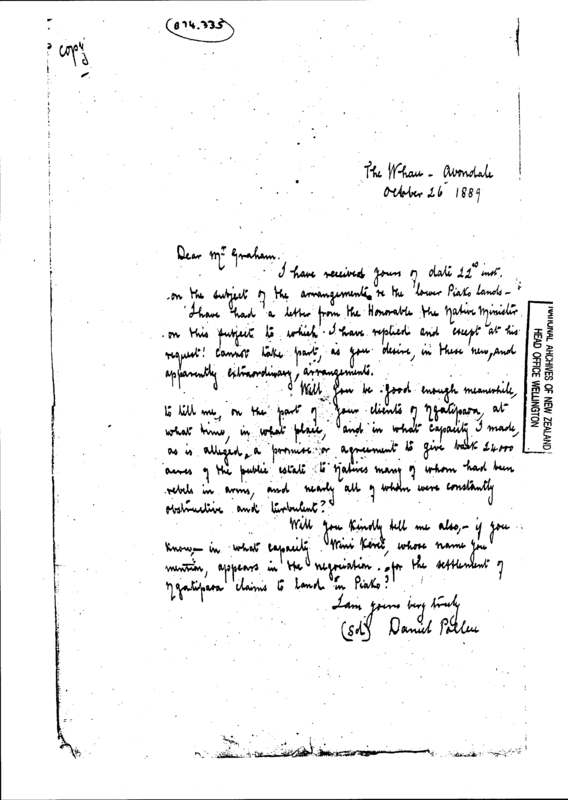 874.335
copy
The Whau - Avondale
October 26 1889
Dear Mr Graham.
I have received yours of date 22nd inst.
on the subject of the arrangements re the lower Piako lands -
I have had a letter from the Honorable the Native Minister
on this subject to which I have replied and except at his
request cannot take part, as you desire, in these new, and
apparently extraordinary, arrangements.
Will you be good enough meanwhile,
to tell me, on the part of your clients of Ngatipaoa, at
what time, in what place, and in what capacity I made,
as is alleged, a promise or agreement to give back 24000
acres of the public estate to Natives many of whom had been
rebels in arms, and nearly all of whom were constantly
obstructive and turbulent?
Will you kindly tell me also, - if you
know, - in what capacity Wini Kerei, whose name you
mention, appears in the negociation for the settlement of
Ngatipaoa claims to land in Piako?
I am yours very truly
(Sd) Daniel Pollen
NATIONAL ARCHIVES OF NEW ZEALAND
HEAD OFFICE WELLINGTON